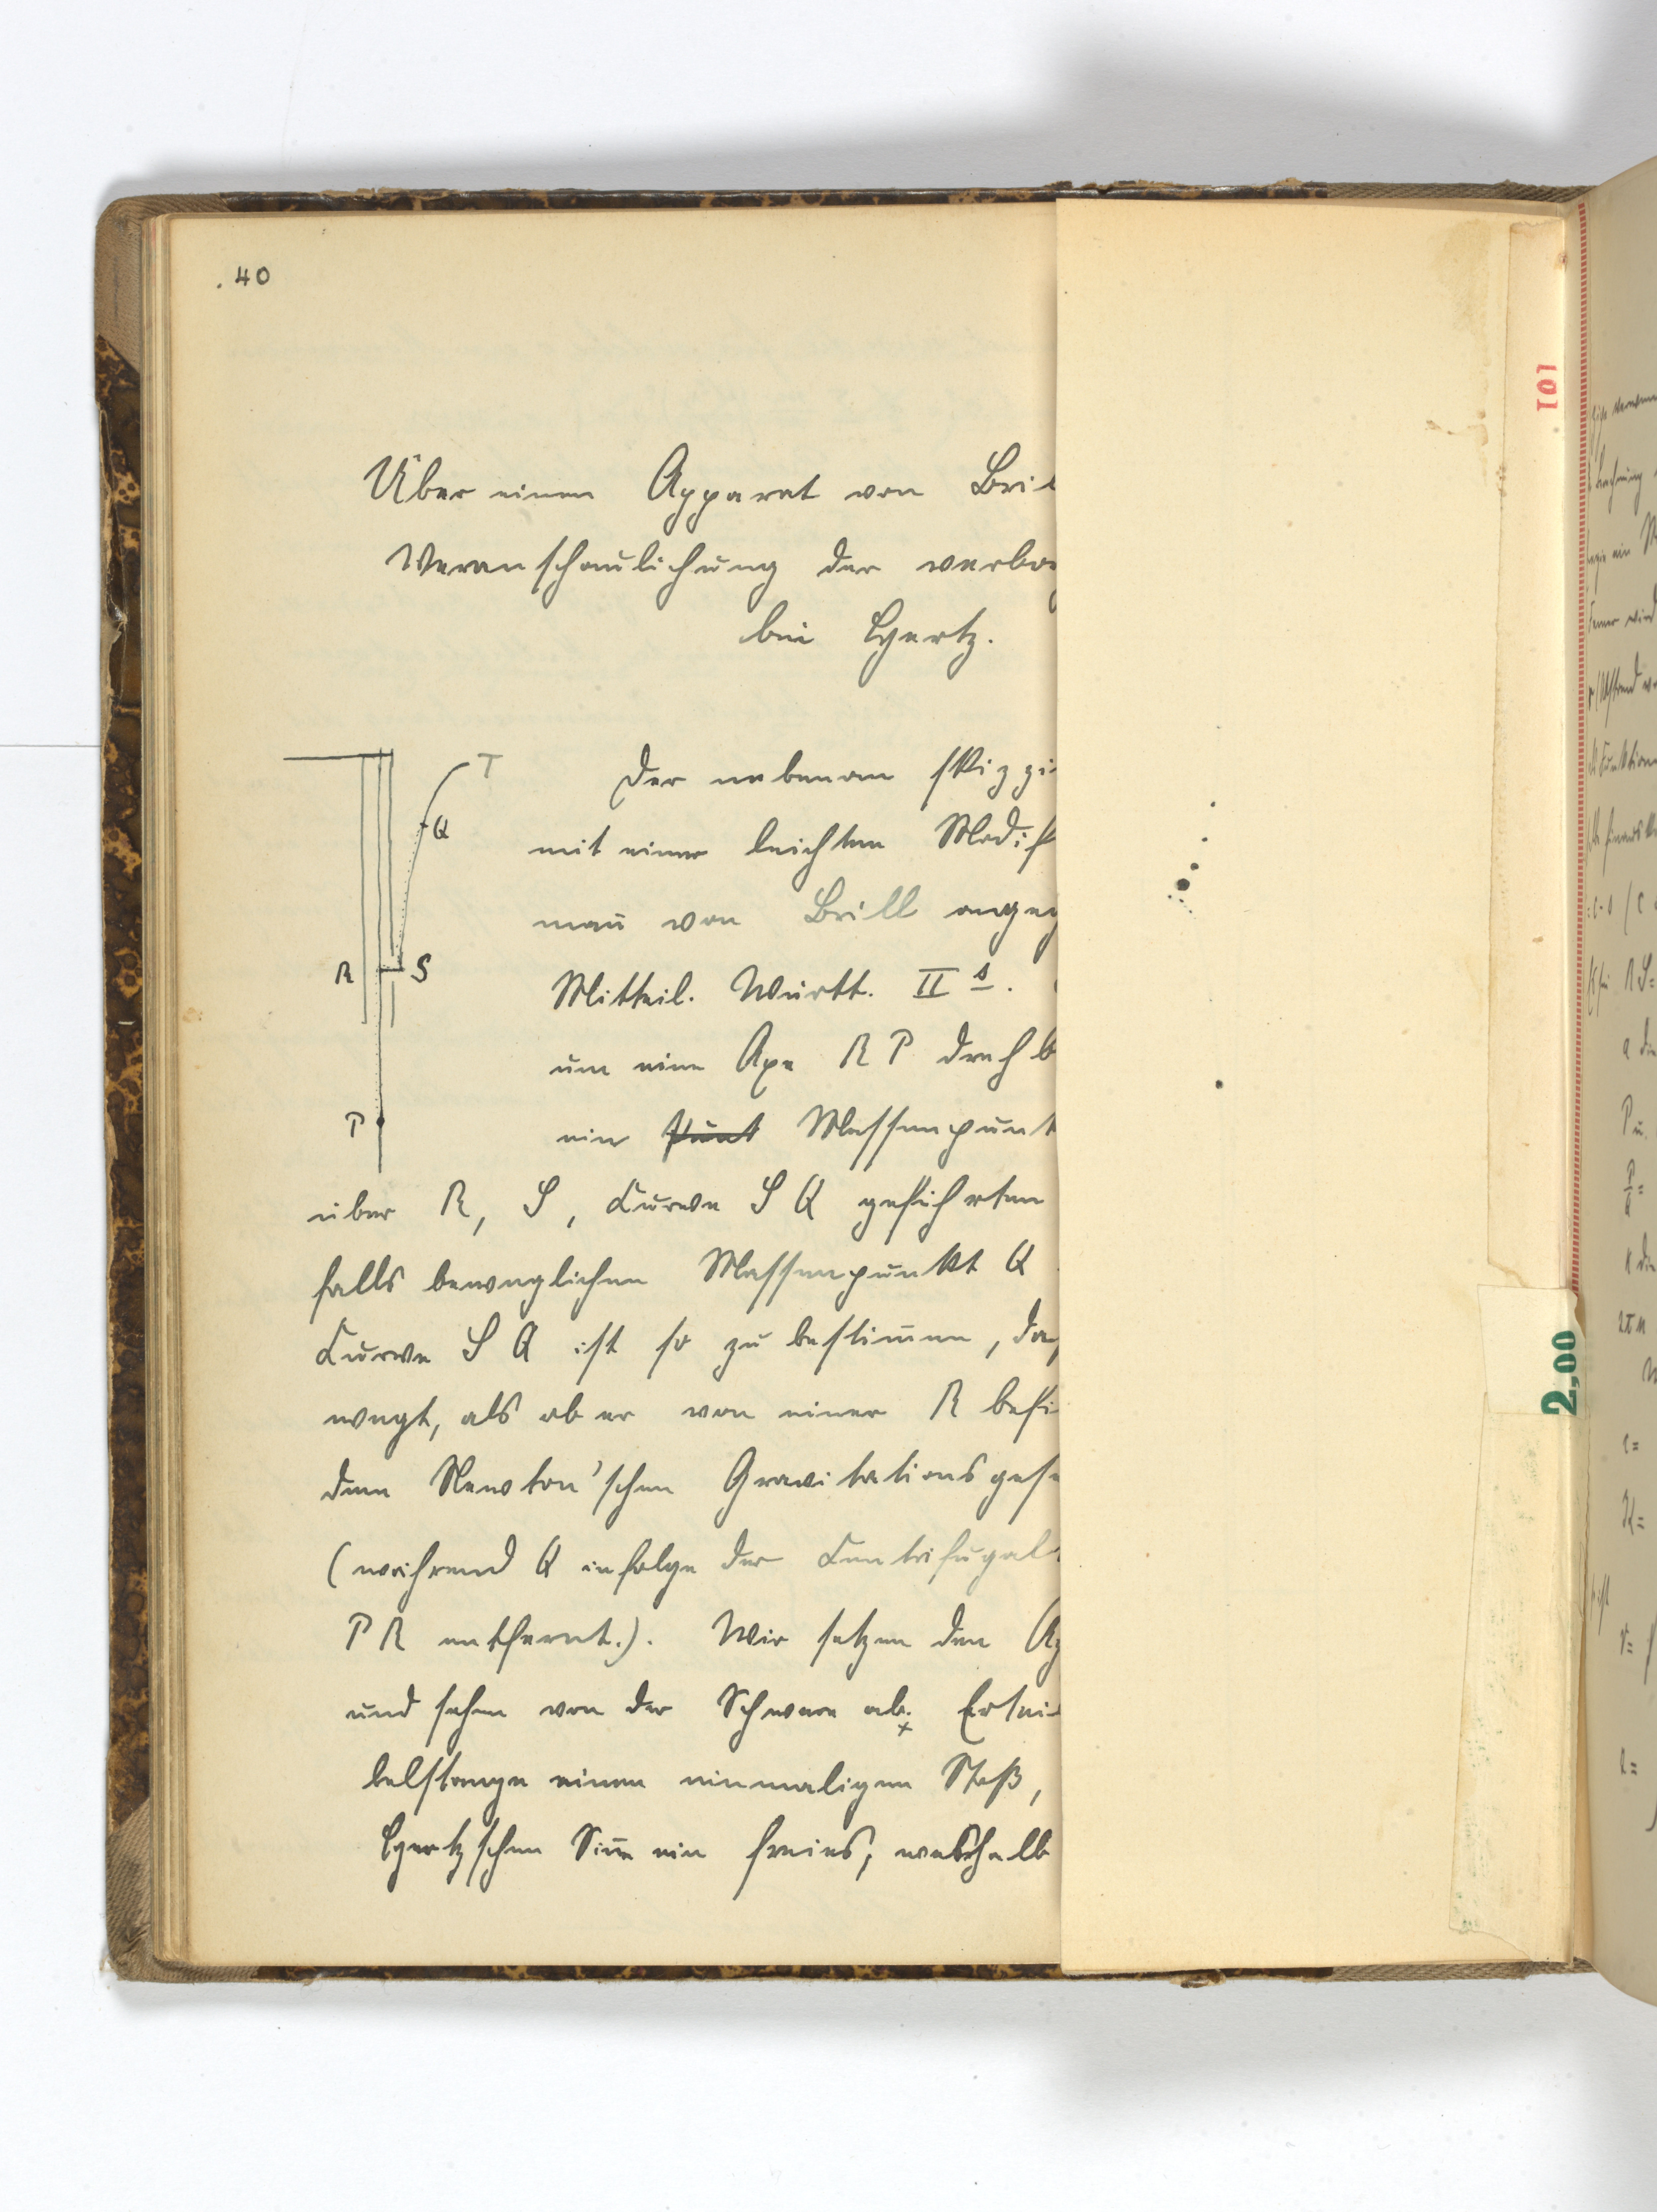 40
Über einen Apparat von Bril
Veranschaulichung der verbor
bei Hertz.
T
Q
R S
P
Der nebenan skizzi
mit einer leichten Modif
nau von Brill angeg
Mitteil. Württ. II s.
um eine Axe RP drehb
ein Punt Massenpunt
über R, S, Curve S Q geführten
falls beweglichen Massenpunkt Q
Curve S Q ist so zu bestimen, daß
wegt, als ob er von einer R befi
dem Newton'schen Gravitationsgese
(während Q infolge der Centrifugal
PR entfernt.). Wir setzen den Ap
und sehen von der Schwere ab. Ertei
belstange einen einmaligen Stoß,
Hertzschen Sinn ein freies, weshalb
101
2,00